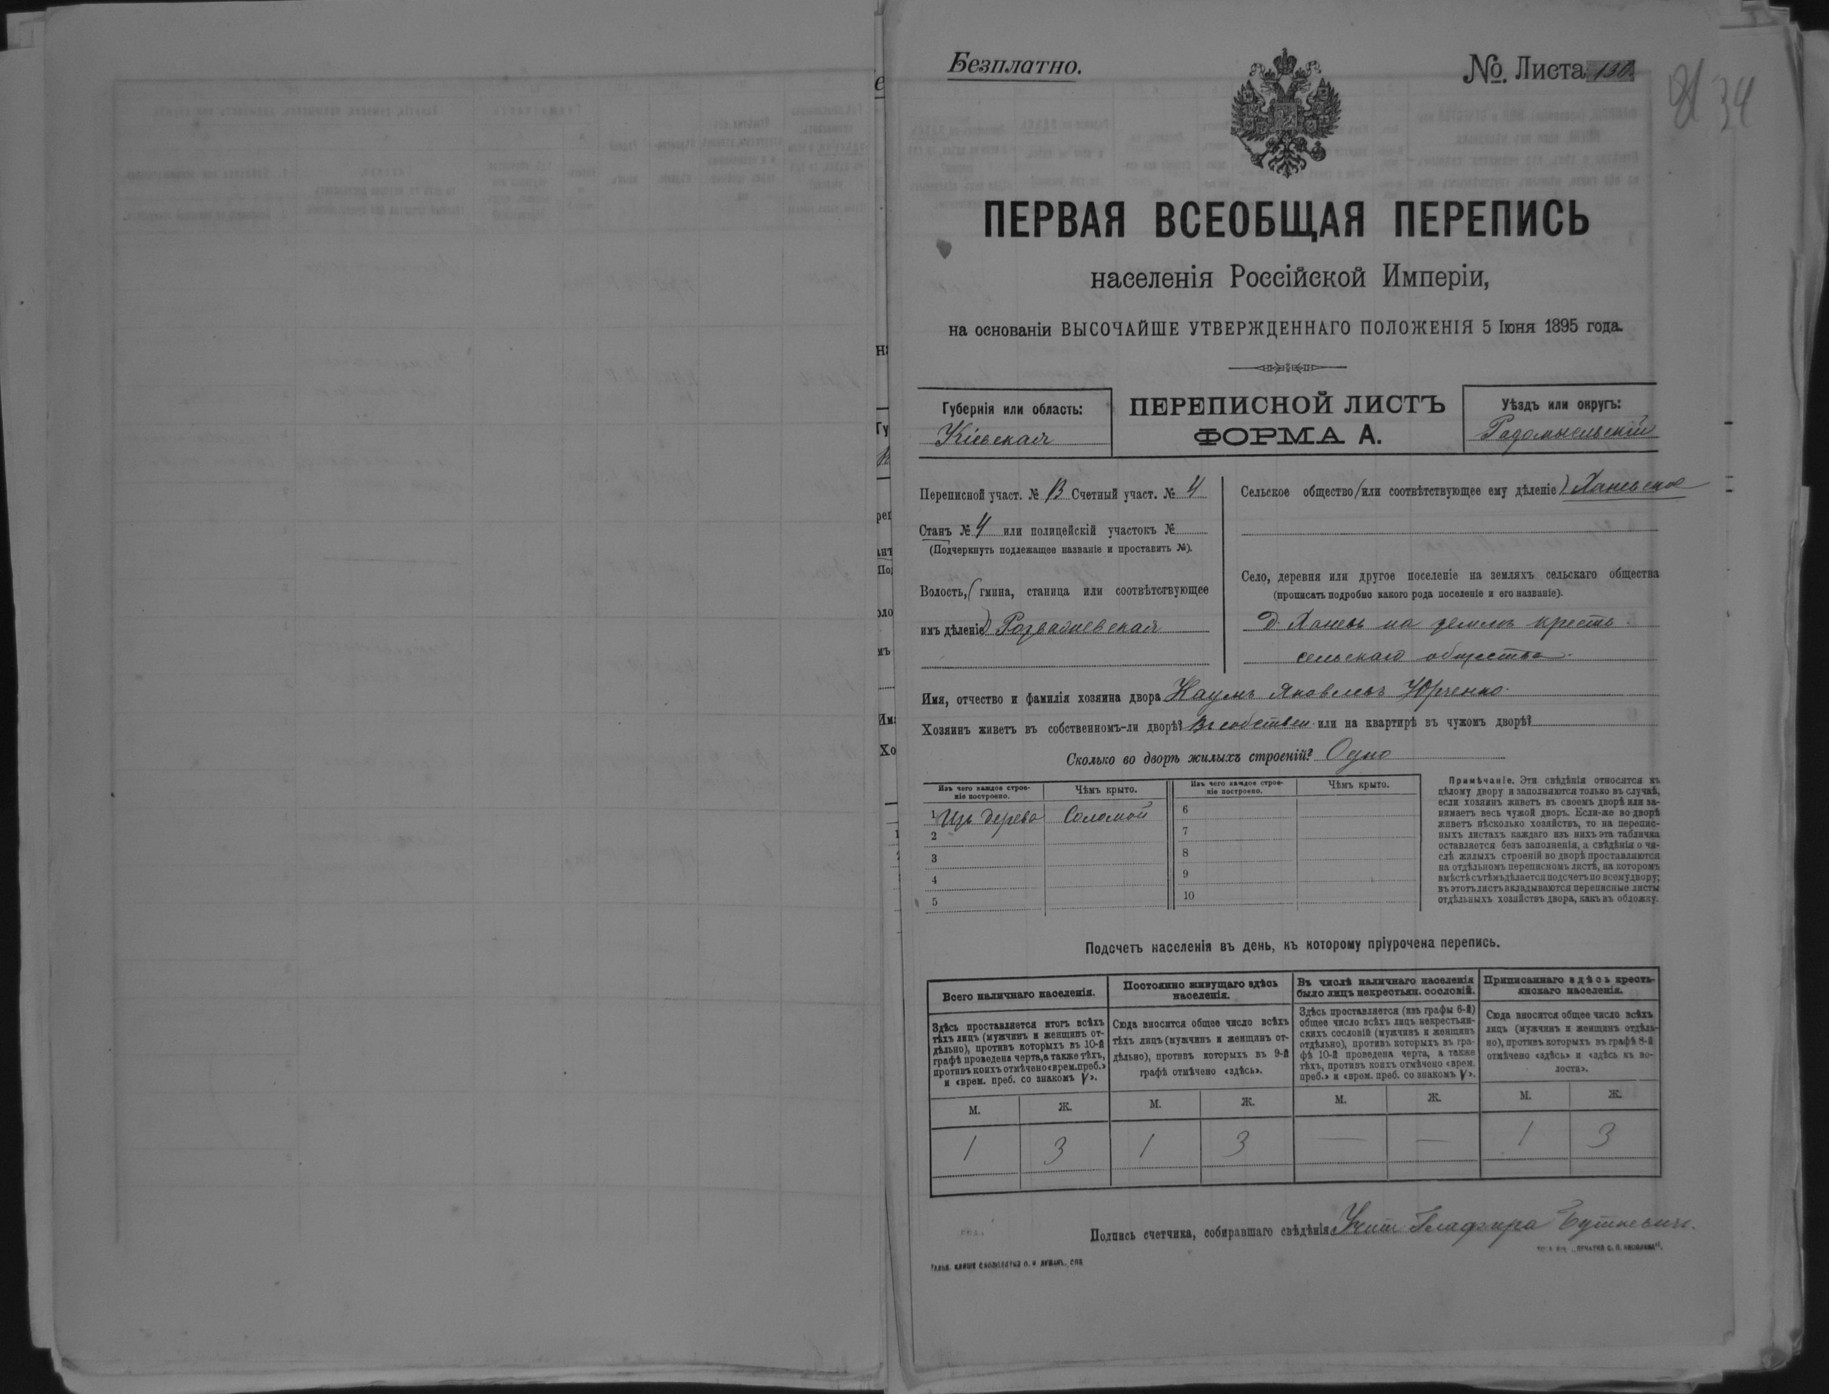 Безплатно.
№. Листа 130
34
ПЕРВАЯ ВСЕОБЩАЯ ПЕРЕПИСЬ
населенія Россійской Имперіи,
на основаніи ВЫСОЧАЙШЕ УТВЕРЖДЕННАГО ПОЛОЖЕНІЯ 5 Іюня 1895 года.
Губернія или область:
Кіевская
ПЕРЕПИСНОЙ ЛИСТЪ
ФОРМА А.
Уѣздъ или округъ:
Радомысльскій
Переписной участ. № 13 Счетный участ. № 4
Станъ № 4 или полицейскій участокъ №
(Подчеркнуть подлежащее названіе и проставить №).
Волость, (гмина, станица или соотвѣтствующее
имъ дѣленіе) Розважевская
Сельское общество (или соотвѣтствующее ему дѣленіе) Ханевское
Село, деревня или другое поселеніе на земляхъ сельскаго общества
(прописать подробно какого рода поселеніе и его названіе).
д. Ханевъ на землѣ крестъ.
сельскаго общества.
Имя, отчество и фамилія хозяина двора Наумъ Яковлевъ Юрченко.
Хозяинъ живетъ въ собственномъ-ли дворѣ? Въ собствен. или на квартирѣ въ чужомъ дворѣ?
Сколько во дворѣ жилыхъ строеній? Одно
Изъ чего каждое строе-
ніе построено.
Чѣмъ крыто.
Изъ чего каждое строе-
ніе построено.
Чѣмъ крыто.
1 Изъ дерева Соломой
2
3
4
5
6
7
8
9
10
Примѣчаніе. Эти свѣдѣнія относятся къ
цѣлому двору и заполняются только въ случаѣ,
если хозяинъ живетъ въ своемъ дворѣ или за-
нимаетъ весь чужой дворъ. Если-же во дворѣ
живетъ нѣсколько хозяйствъ, то на перепис-
ныхъ листахъ каждаго изъ нихъ эта табличка
оставляется безъ заполненія, а свѣдѣнія о чи-
слѣ жилыхъ строеній во дворѣ проставляются
на отдѣльномъ переписномъ листѣ, на которомъ
вмѣстѣ съ тѣмъ дѣлается подсчетъ по всему двору;
въ этотъ листъ вкладываются переписные листы
отдѣльныхъ хозяйствъ двора, какъ въ обложку.
Подсчетъ населенія въ день, къ которому пріурочена перепись.
Всего наличнаго населенія.
Здѣсь проставляется итогъ всѣхъ
тѣхъ лицъ (мужчинъ и женщинъ от-
дѣльно), противъ которыхъ въ 10-й
графѣ проведена черта, а также тѣхъ,
противъ коихъ отмѣчено «врем. преб.»
и «врем. преб. со знакомъ V».
Постоянно живущаго здѣсь
населенія.
Сюда вносится общее число всѣхъ
тѣхъ лицъ (мужчинъ и женщинъ от-
дѣльно), противъ которыхъ въ 9-й
графѣ отмѣчено «здѣсь».
Въ числѣ наличнаго населенія
было лицъ некрестьян. сословій.
Здѣсь проставляется (изъ графы 6-й)
общее число всѣхъ лицъ некрестьян-
скихъ сословій (мужчинъ и женщинъ
отдѣльно), противъ которыхъ въ гра-
фѣ 10-й проведена черта, а также
тѣхъ, противъ коихъ отмѣчено «врем.
преб.» и «врем. преб. со знакомъ V».
Приписаннаго здѣсь кресть-
янскаго населенія.
Сюда вносится общее число всѣхъ
лицъ (мужчинъ и женщинъ отдѣль-
но), противъ которыхъ въ графѣ 8-й
отмѣчено «здѣсь» и «здѣсь къ во-
лости».
М. Ж. М. Ж. М. Ж. М. Ж.
1 3 1 3 — — 1 3
Подпись счетчика, собиравшаго свѣдѣнія Учит. Глафира Буткевичъ.